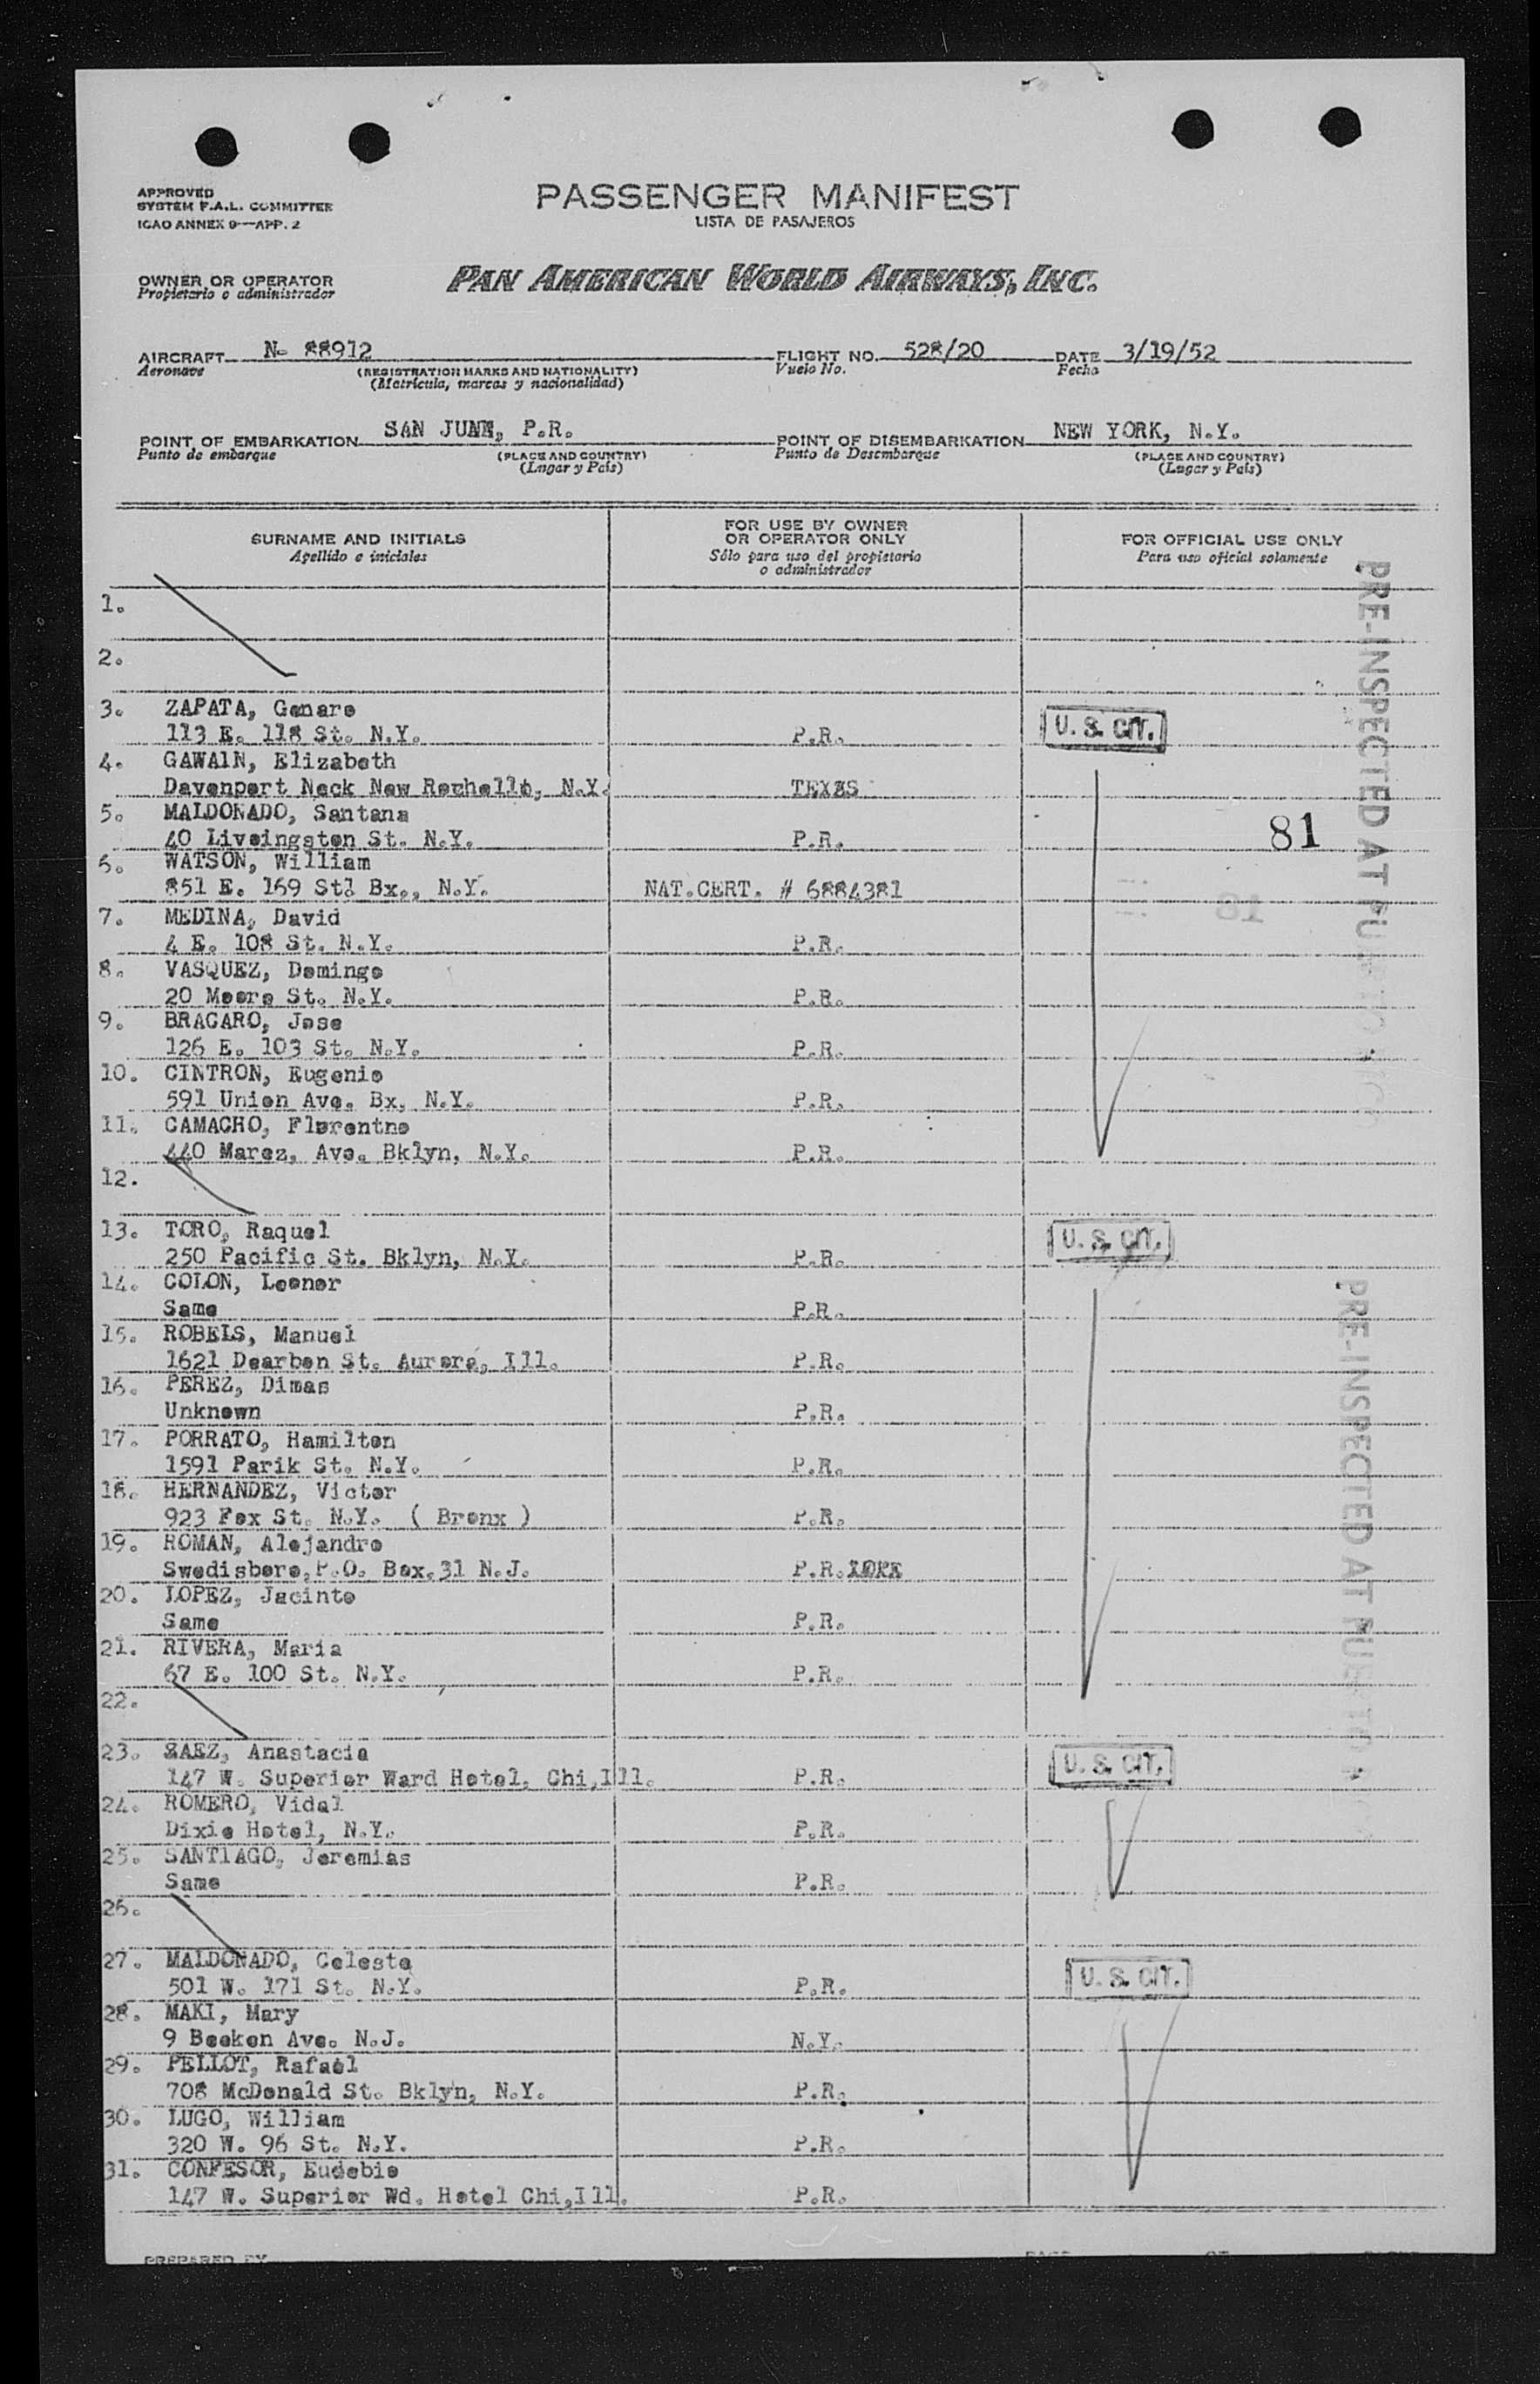 APPROVED
SYSTEM F.A.L. COMMITTEE
ICAO ANNEX 9—APP. 2
PASSENGER MANIFEST
LISTA DE PASAJEROS
OWNER OR OPERATOR
Propietario o administrador
PAN AMERICAN WORLD AIRWAYS, INC.
AIRCRAFT N- 88912 FLIGHT NO. 528/20 DATE 3/19/52
Aeronave (REGISTRATION MARKS AND NATIONALITY) Vuelo No. Fecha
(Matrícula, marcas y nacionalidad)
POINT OF EMBARKATION SAN JUAN, P.R. POINT OF DISEMBARKATION NEW YORK, N.Y.
Punto de embarque (PLACE AND COUNTRY) Punto de Desembarque (PLACE AND COUNTRY)
(Lugar y País) (Lugar y País)
SURNAME AND INITIALS FOR USE BY OWNER OR OPERATOR ONLY FOR OFFICIAL USE ONLY
Apellido e iniciales Sólo para uso del propietario o administrador Para uso oficial solamente
1.
2.
3. ZAPATA, Genaro
113 E. 118 St. N.Y. P.R. U. S. CIT.
4. GAWAIN, Elizabeth
Davenport Neck New Rochelle, N.Y. TEXAS
5. MALDONADO, Santana
40 Liveingston St. N.Y. P.R. 81
6. WATSON, William
851 E. 169 St. Bx., N.Y. NAT.CERT. # 6884381
7. MEDINA, David 81
4 E. 108 St. N.Y. P.R.
8. VASQUEZ, Domingo
20 Moore St. N.Y. P.R.
9. BRACARO, Jose
126 E. 103 St. N.Y. P.R.
10. CINTRON, Eugenio
591 Union Ave. Bx, N.Y. P.R.
11. CAMACHO, Florentno
440 Marcz, Ave. Bklyn, N.Y. P.R.
12.
13. TORO, Raquel
250 Pacific St. Bklyn, N.Y. P.R. U. S. CIT.
14. COLON, Leonor
Same P.R.
15. ROBELS, Manuel
1621 Dearbon St. Aurora, Ill. P.R.
16. PEREZ, Dimas
Unknown P.R.
17. PORRATO, Hamilton
1591 Parik St. N.Y. P.R.
18. HERNANDEZ, Victor
923 Fox St. N.Y. ( Bronx ) P.R.
19. ROMAN, Alejandro
Swedisboro, P.O. Box.31 N.J. P.R.
20. LOPEZ, Jacinto
Same P.R.
21. RIVERA, Maria
67 E. 100 St. N.Y. P.R.
22.
23. SAEZ, Anastacia
147 W. Superior Ward Hotel, Chi,Ill. P.R. U. S. CIT.
24. ROMERO, Vidal
Dixie Hotel, N.Y. P.R.
25. SANTIAGO, Jeremias
Same P.R.
26.
27. MALDONADO, Celeste
501 W. 171 St. N.Y. P.R. U. S. CIT.
28. MAKI, Mary
9 Beeken Ave. N.J. N.Y.
29. PELLOT, Rafael
708 McDonald St. Bklyn, N.Y. P.R.
30. LUGO, William
320 W. 96 St. N.Y. P.R.
31. CONFESOR, Eudebio
147 W. Superior Wd. Hotel Chi,Ill. P.R.
PREPARED BY
PRE-INSPECTED AT PUERTO RICO
PRE-INSPECTED AT PUERTO